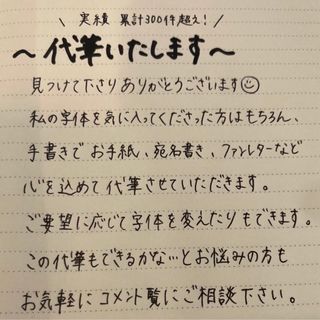 ＼実績 累計300件超え！／
～代筆いたします～
見つけて下さりありがとうございます☺
私の字体を気に入ってくださった方はもちろん、
手書きでお手紙、宛名書き、ファンレターなど
心を込めて代筆させていただきます。
ご要望に応じて字体を変えたりもできます。
この代筆もできるかな…とお悩みの方も
お気軽にコメント覧にご相談下さい。